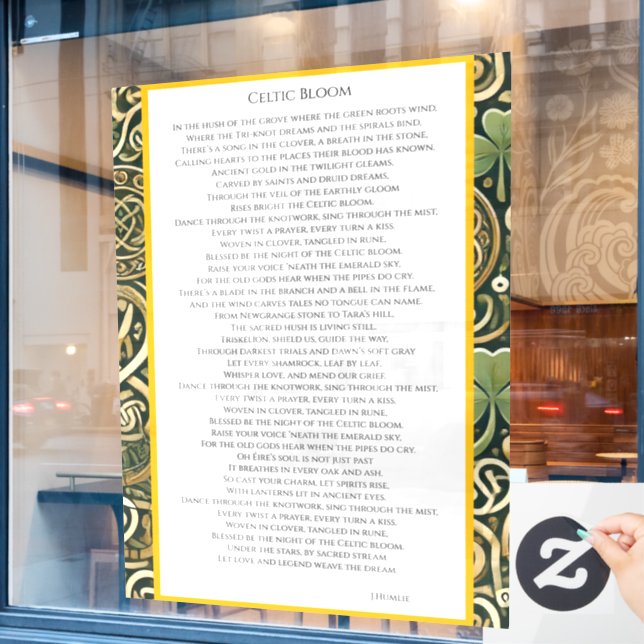 Celtic Bloom
In the hush of the grove where the green roots wind,
Where the Tri-knot dreams and the spirals bind,
There's a song in the clover, a breath in the stone,
Calling hearts to the places their blood has known.
Ancient gold in the twilight gleams,
Carved by saints and druid dreams,
Through the veil of the earthly gloom
Rises bright the Celtic Bloom.
Dance through the knotwork, sing through the mist,
Every twist a prayer, every turn a kiss.
Woven in clover, tangled in rune,
Blessed be the night of the Celtic Bloom.
Raise your voice 'neath the emerald sky,
For the old gods hear when the pipes do cry.
There's a blade in the branch and a bell in the flame,
And the wind carves tales no tongue can name.
From Newgrange stone to Tara's hill,
The sacred hush is living still.
Triskelion, shield us, guide the way,
Through darkest trials and dawn's soft gray
Let every shamrock, leaf by leaf,
Whisper love, and mend our grief.
Dance through the knotwork, sing through the mist,
Every twist a prayer, every turn a kiss.
Woven in clover, tangled in rune,
Blessed be the night of the Celtic Bloom.
Raise your voice 'neath the emerald sky,
For the old gods hear when the pipes do cry.
Oh Éire's soul is not just past
It breathes in every oak and ash.
So cast your charm, let spirits rise,
With lanterns lit in ancient eyes.
Dance through the knotwork, sing through the mist,
Every twist a prayer, every turn a kiss.
Woven in clover, tangled in rune,
Blessed be the night of the Celtic Bloom.
Under the stars, by sacred stream
Let love and legend weave the dream
J.Humlie
Z